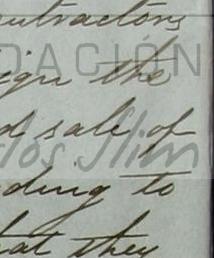 ontractors
DACIÓN
ign the
d sale of
los Slim
ding to
hat they